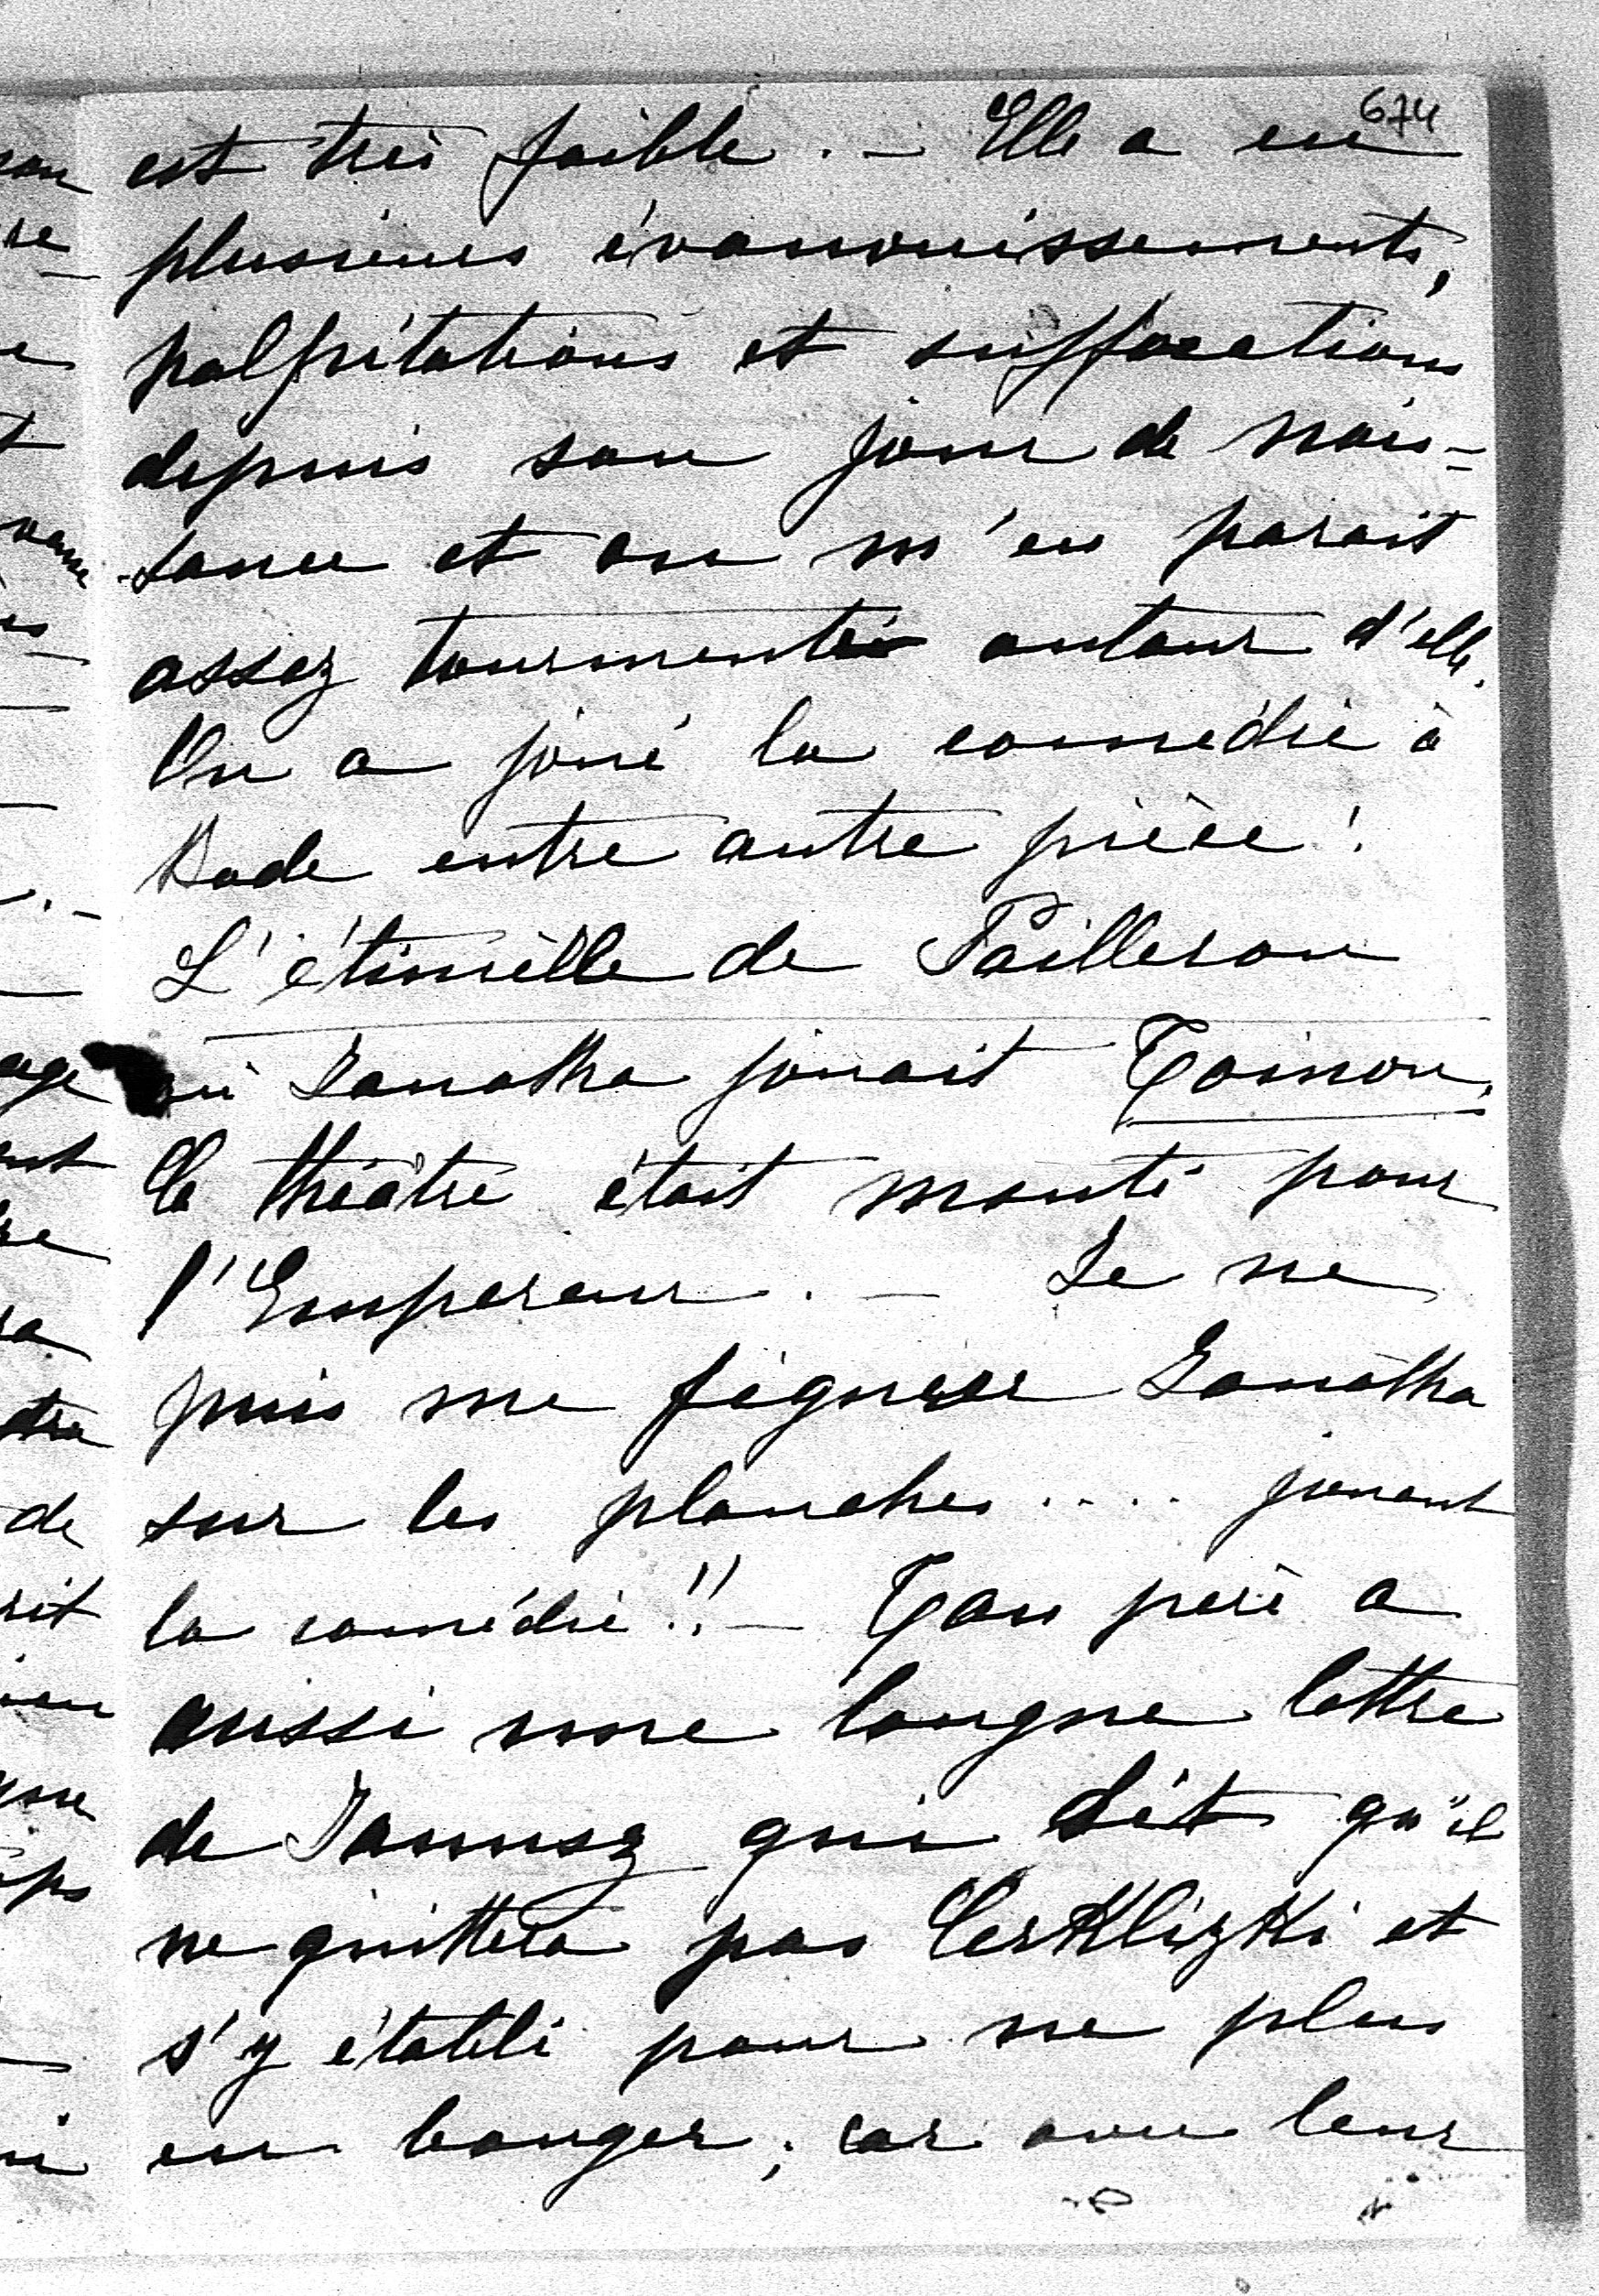 674
est très faible. — Elle a eu
plusieurs évanouissements,
palpitations et suffocations
depuis son jour de nais=
-sance et on m'en parait
assez tourmenté autour d'elle.
On a joué la comédie à
Bade entre autre pièce:
L'étincelle de Pailleron
où Zanotha jouait Toinon.
le théâtre était monté pour
l'Empereur. — Je ne
puis me figurer Zanotha
sur les planches .... jouant
la comédie!! — Ton père a
aussi une longue lettre
de Janusz qui dit qu'il
ne quittera pas et
s'y établi pour ne plus
en bouger; car avec leur